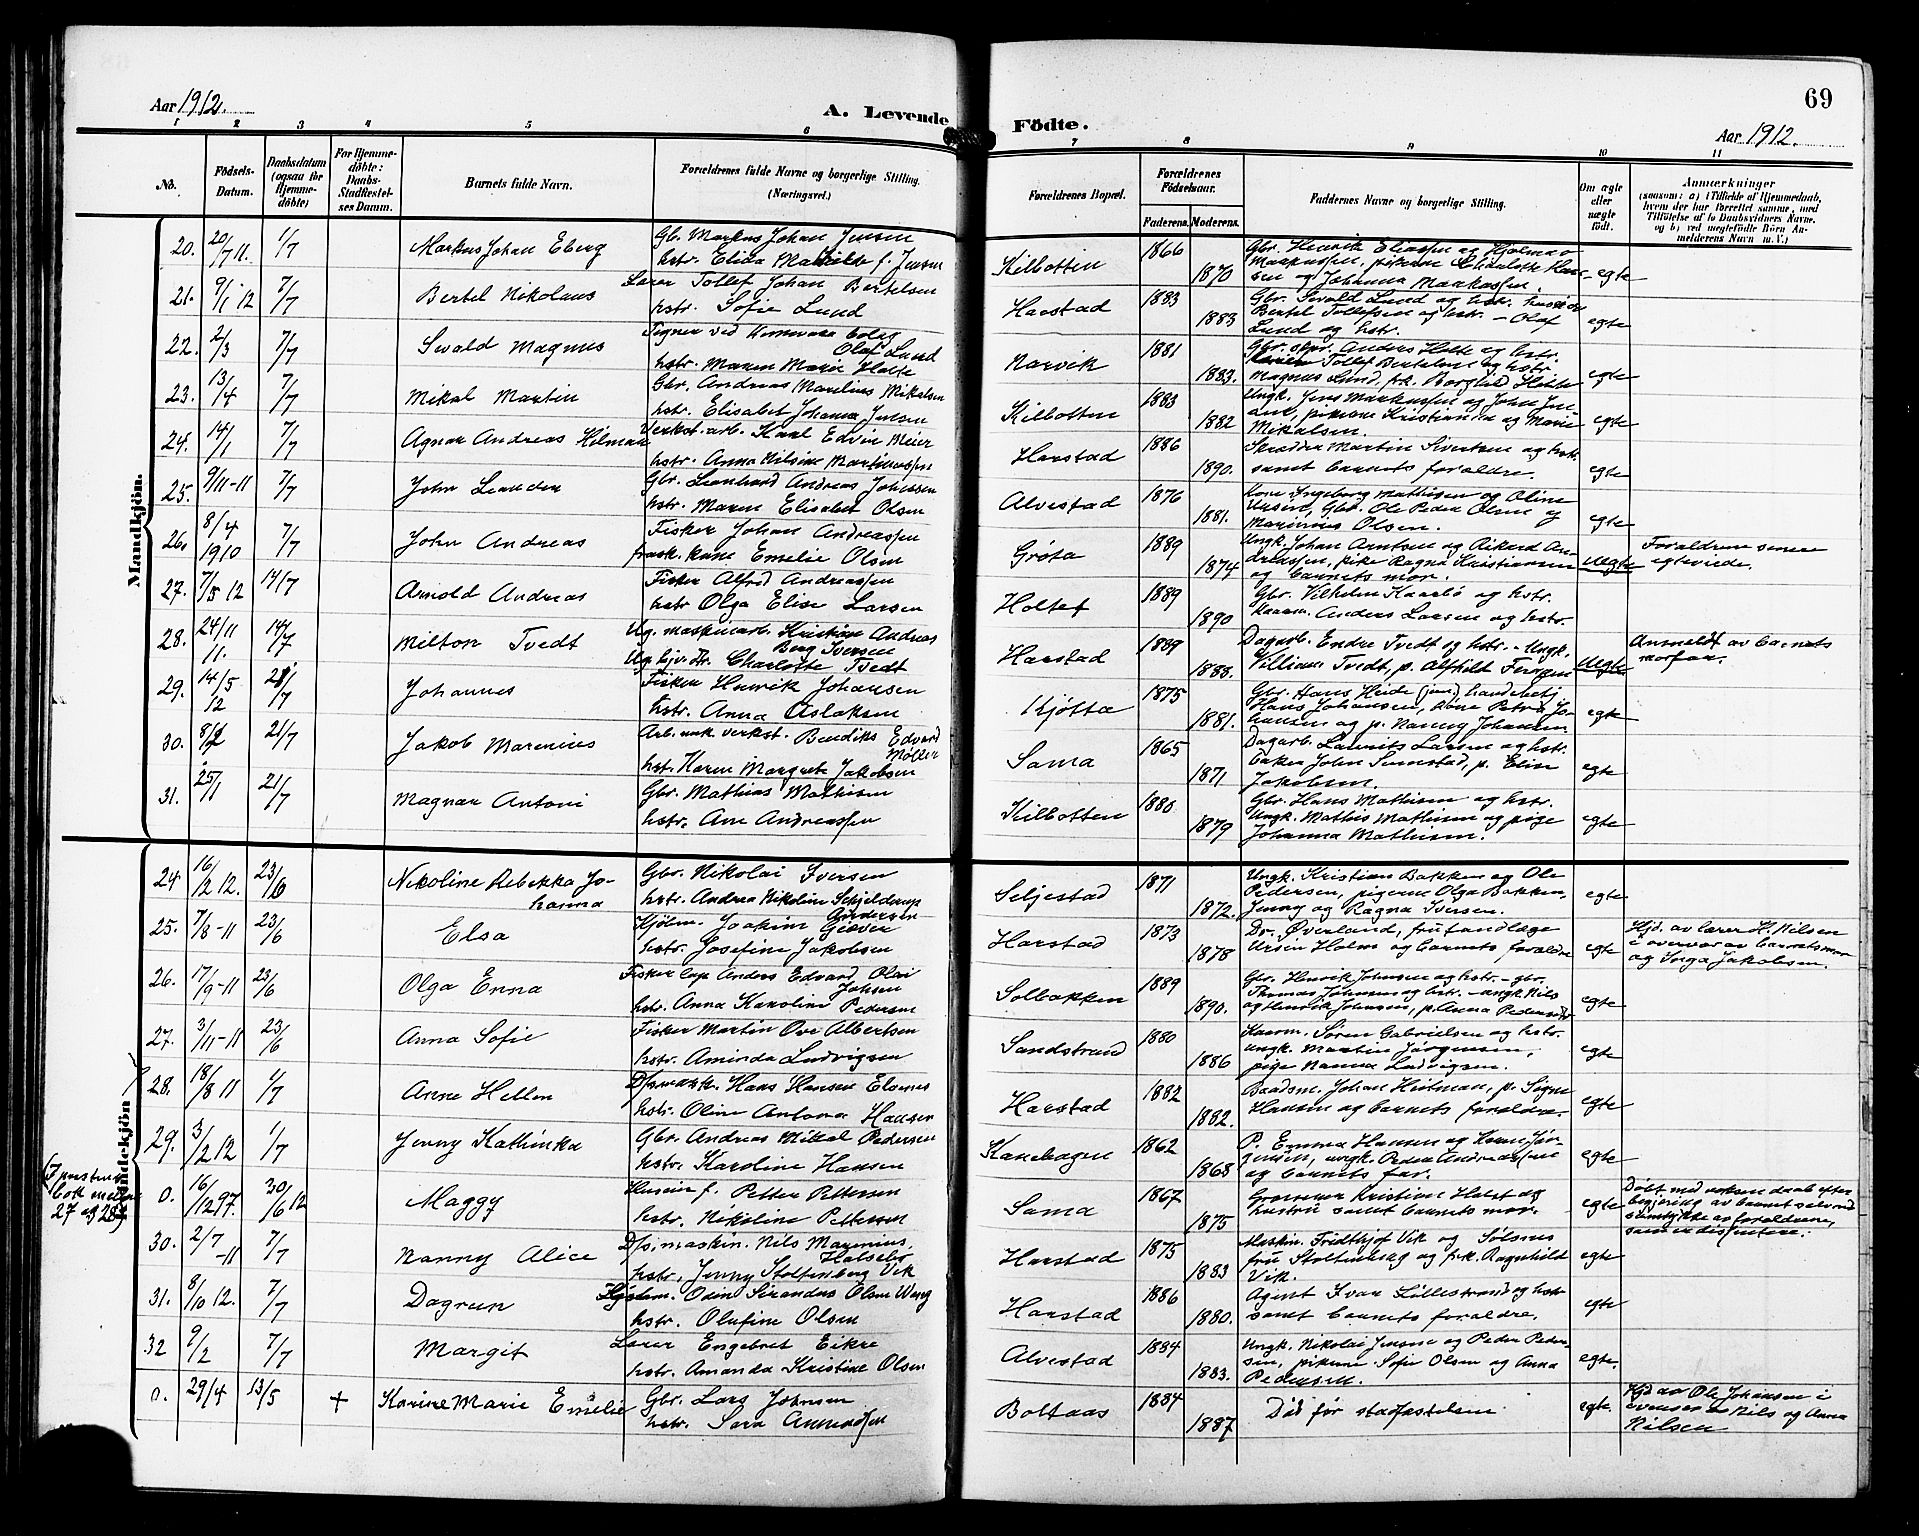 69
Aar 1912.
A. Levende Födte.
Aar 1912.
1 2 3 4 5 6 7 8 9 10 11
No.
Födsels-Datum.
Daabsdatum (ogsaa for Hjemme-döbte)
For Hjemme-döbte: Daabs-Stadfæstel-ses Datum.
Barnets fulde Navn.
Forældrenes fulde Navne og borgerlige Stilling. (Næringsvei.)
Forældrenes Bopæl.
Forældrenes Födselsaar.
Faderens. Moderens.
Faddernes Navne og borgerlige Stilling.
Om ægte eller uægte födt.
Anmærkninger
(saasom: a) i Tilfælde af Hjemmedaab, hvem der har forrettet samme, med Tilföielse af to Daabsvidners Navne. og b) ved uegtefödte Börn Anmelderens Navn m.V.)
Mandkjön.
20. 20/7 11. 1/7 Markus Johan Eberg
Gbr. Markus Johan Jensen
hstr. Elida Mathilde f. Jensen
Kilbotten 1866 1870
Gbr. Henrik Eliassen og Hjalmar Markussen, pikerne Charlotte Hansen og Johanna Markussen. egte
21. 9/1 12 7/7 Bertel Nikolaus
Lærer Tollef Johan Bertelsen
hstr. Sofie Lund
Harstad 1883 1883
Gbr. Sivald Lund og hstr.
Bertel Tollefsen og hstr. - Olaf Lund og hstr. egte
22. 2/3 7/7 Sivald Magnus
Olaf Lund
hstr. Maren Marie Holte
Narvik 1881 1883.
Anders Holte og hstr.
Tollef Bertelsen og hstr.
Magnus Lund, frk. Borghild Holte egte
23. 13/4 7/7 Mikal Martin
Gbr. Andreas Marelius Mikalsen
hstr. Elisabet Johanna Jensen
Kilbotten 1883 1882
Ungk. Jens Markussen og John Jensen, pikerne Kristianna og Marie Mikalsen. egte
24. 14/1 7/7 Agnar Andreas Hilmar
Verkst. arb. Karl Edvin Meier
hstr. Anna Nilsine Martinussen
Harstad 1886 1890.
Skrædder Martin Sivertsen og hstr.
samt barnets forældre. egte
25. 9/11-11 7/7 John Leander
Gbr. Leonhard Andreas Johnssen
hstr. Maren Elisabet Olsen
Alvestad 1876 1881.
Kone Ingeborg Mathisen og Oline Ursin, Gbr. Ole Peder Olsen og Marinius Olsen. egte
26. 8/4 1910 7/7 John Andreas
Fisker Johan Andreassen
frask. kone Emelie Olsen
Grøta 1889 1874
Ungk. Johan Arntsen og Rikard Andreassen, pike Ragna Kristiansen og barnets mor. uegte
Forældrene senere egteviede.
27. 7/5 12 14/7 Arnold Andreas
Fisker Alfred Andreassen
hstr Olga Elise Larsen
Holtet 1889 1890
Gbr. Vilhelm Kaarbø og hstr.
Anders Larsen og hstr.
28. 24/11 11. 14/7 Milton Tvedt
Ug. maskinarb. Kristian Andreas Berg Iversen
Charlotte Tvedt
Harstad 1889 1888.
Dagarb. Endre Tvedt og hstr. - Ungk. William Tvedt, p. Alfhilt uegte
Anmeldt av barnets morfar.
29. 14/5 12 21/7 Johannes
Fisker Henrik Johansen
hstr. Anna Aslaksen
Kjøtta 1875 1881.
Gbr. Hans Heide (jun.)
Hans Johansen, kone Petra Johansen og p. Nanny Johansen. egte
30. 8/2 21/7 Jakob Marenius
Arb. mek verkst. Bendiks Edvard Møller
hst. Karen Margrete Jakobsen
Sama 1865 1871
Dagarb. Laurits Larsen og hstr.
baker John Simestad, p. Elise Jakobsen. egte
31. 25/1 21/7 Magnar Antoni
Gbr. Mathias Mathisen
hstr. Ane Andreassen
Kilbotten 1880 1879
Gbr. Hans Mathisen og hstr.
Ungk. Mathis Mathisen og pige Johanna Mathisen. egte
Kvindekjön
24 16/2 12. 23/6 Nikoline Rebekka Johanna
Gbr. Nikolai Iversen
hstr. Andrea Nikoline Schjelderup Andersen
Seljestad 1871 1872.
Ungk. Kristian Bakken og Ole Pedersen, pigerne Olga Bakken, Jenny og Ragna Iversen. egte
25. 7/8-11 23/6 Elsa
Kjøbm. Joakim Giæver
hstr. Josefine Jakobsen
Harstad 1873 1878
Dr. Øverland, fru tandlæge Ursin Holm og barnets forældre egte
Hjd. av lærer H. Nilsen i overvær av barnets mor og Inga Jakobsen.
26. 17/9-11 23/6 Olga Enna
Fisker Anders Edvard Olai Johsen
hstr. Anna Karoline Pedersen
Solbakken 1889 1890.
Gbr. Henrik Johnsen og hstr. - gbr.
Thomas Johnsen og hstr. - ungk Nils og Henrik Johnsen, p. Anna Pedersen egte
27. 3/11-11 23/6 Anna Sofie
Fisker Martin Ove Albertsen
hstr. Aminda Ludvigsen
Sandstrand 1880 1886
Kaarm. Søren Gabrielsen og hstr.
ungk. Martin Jørgensen,
pige Nanna Ludvigsen. egte
28. 18/8 11 1/7 Anne Hellen
Hans Hansen Elvenes
hstr. Oline Antona Hansen
Harstad 1882 1882.
Baadsm. Johan Heitman, p. Signe Hansen og barnets forældre. egte
29. 3/2 12 1/7 Jenny Kathinka
Gbr. Andreas Mikal Pedersen
hstr. Karoline Hansen
Kanebogen 1862 1868
P. Emma Hansen og Karen Jørgensen, ungk. Peder Andreassen og barnets far. egte
(I prestens bok mellem 27 og 28)
0. 16/12 97. 30/6 12 Maggy
Huseier f. Petter Pettersen
hstr. Nikoline Pettersen
Sama 1867 1875
Grosserer Kristian Holst og hustru samt barnets mor. egte
Døbt med voksen daab efter begjering av barnet selv med samtykke av forældrene, som er dissentere.
30. 2/7-11 7/7 Nanny Alice
D/s. maskin. Nils Marenius Halsebø
hstr. Jenny Stoltenberg Vik
Harstad 1875 1883
Maskin. Fridthjof Vik og Sølsnes
fru Stoltenberg og frk. Ragnhild Vik. egte
31. 8/10 12. 7/7 Dagrun
Odin Sirandus Olsen Weng
hstr. Olufine Olsen
Harstad 1886 1880.
Agent Ivar Lillestrand og hstr
samt barnets forældre. egte
32 9/2 7/7 Margit
Lærer Engebret Eikre
hstr. Amanda Kristine Olsen
Alvestad 1884 1883.
Ungk. Nikolai Jensen og Peder Pedersen, pikerne Sofie Olsen og Anna Pedersen. egte.
0. 29/4 13/5 + Karine Marie Emelie
Gbr. Lars Johnsen
hstr. Sara Amundsen
Boltaas 1884 1887
Død før stadfæstelsen. egte.
Hjd av Ole Johansen i overvær a Nils og Anna Nilsen